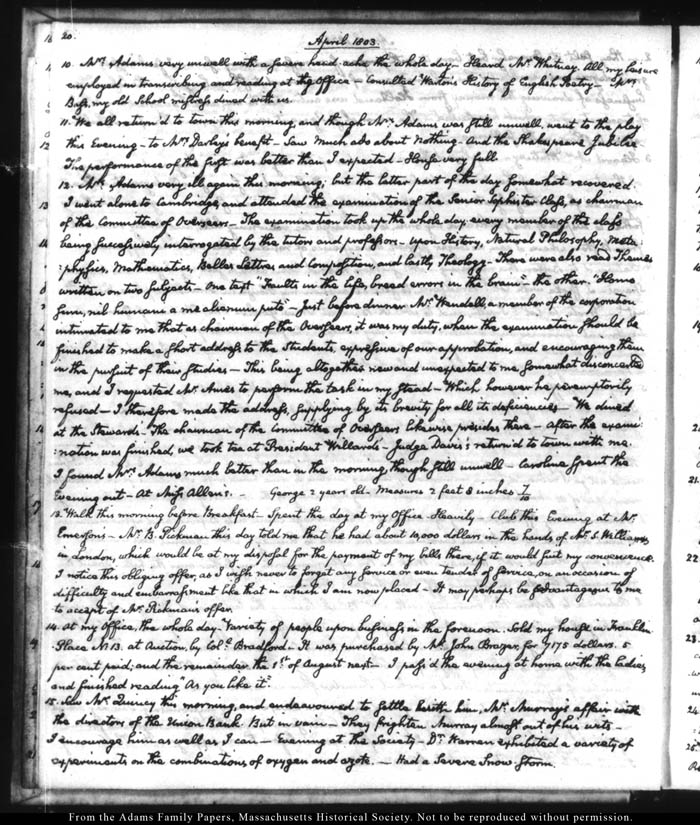 20.
April 1803.
10. Mrs. Adams very unwell with a severe head-ache the whole day – Heard Mr. Whitney. All my leisure
employed in transcribing and reading at the Office – Consulted Warton's History of English Poetry –
Bass, my old School mistress dined with us.
11. We all return'd to town this morning, and though Mrs. Adams was still unwell, went to the play
this Evening – to Mrs. Darley's benefit – Saw Much ado about Nothing – And the Shakespeare Jubilee
The performance of the first was better than I expected – House very full.
12. Mrs. Adams very ill again this morning, but the latter part of the day somewhat recovered.
I went alone to Cambridge, and attended the examination of the Senior Sophister Class, as chairman
of the Committee of Overseers – The examination took up the whole day, every member of the class
being successively interrogated by the tutors and professors – upon History, Natural Philosophy, Meta-
:physics, Mathematics, Belles Lettres and Composition, and lastly Theology – There were also read Themes
written on two subjects – One text "Faults in the life, breed errors in the brain" – the other "Homo
sum, nil humani a me alienum puto" – Just before dinner Mr. Wendell, a member of the corporation
intimated to me that as chairman of the Overseers, it was my duty, when the examination should be
finished to make a short address to the Students, expressive of our approbation, and encouraging them
in the pursuit of their studies – This being altogether new and unexpected to me somewhat disconcerted
me, and I requested Mr. Ames to perform the task in my stead – Which however he peremptorily
refused – I therefore made the address, supplying by its brevity for all its deficiencies – We dined
at the Stewards – The chairman of the Committee of Overseers likewise presides there – After the exami-
:nation was finished, we took tea at President Willard's – Judge Davis return'd to town with me.
I found Mrs. Adams much better than in the morning, though still unwell – Caroline spent the
Evening out – At Miss Allen's. – George 2 years old – Measures 2 feet 8 inches 7/10
13. Walk this morning before Breakfast – Spent the day at my Office – Heavily – Club this Evening at Mr.
Emerson's – Mr. B. Pickman this day told me that he had about 10,000 dollars in the hands of Mr. S. Williams
in London, which would be at my disposal for the payment of my bills there, if it would suit my convenience.
I notice this obliging offer, as I wish never to forget any service or even tender of service, on an occasion of
difficulty and embarrassment like that in which I am now placed – It may perhaps be advantageous to me
to accept of Mr. Pickman's offer.
14. At my Office, the whole day. Variety of people upon business in the forenoon. Sold my house in Franklin
Place N. 13. at Auction, by Coll. Bradford – It was purchased by Mr. John Brazer, for 7175 dollars. 5
per cent paid; and the remainder the 1st. of August next – I pass'd the evening at home with the ladies
and finished reading "As you like it."
15. Saw Mr. Quincy this morning, and endeavoured to settle with him, Mr. Murray's affair with
the directors of the Union Bank. But in vain – They frighten Murray almost out of his wits –
I encourage him as well as I can – Evening at the Society – Dr. Warren exhibited a variety of
experiments on the combinations of oxygen and azote. – Had a severe Snow-Storm.
From the Adams Family Papers, Massachusetts Historical Society. Not to be reproduced without permission.